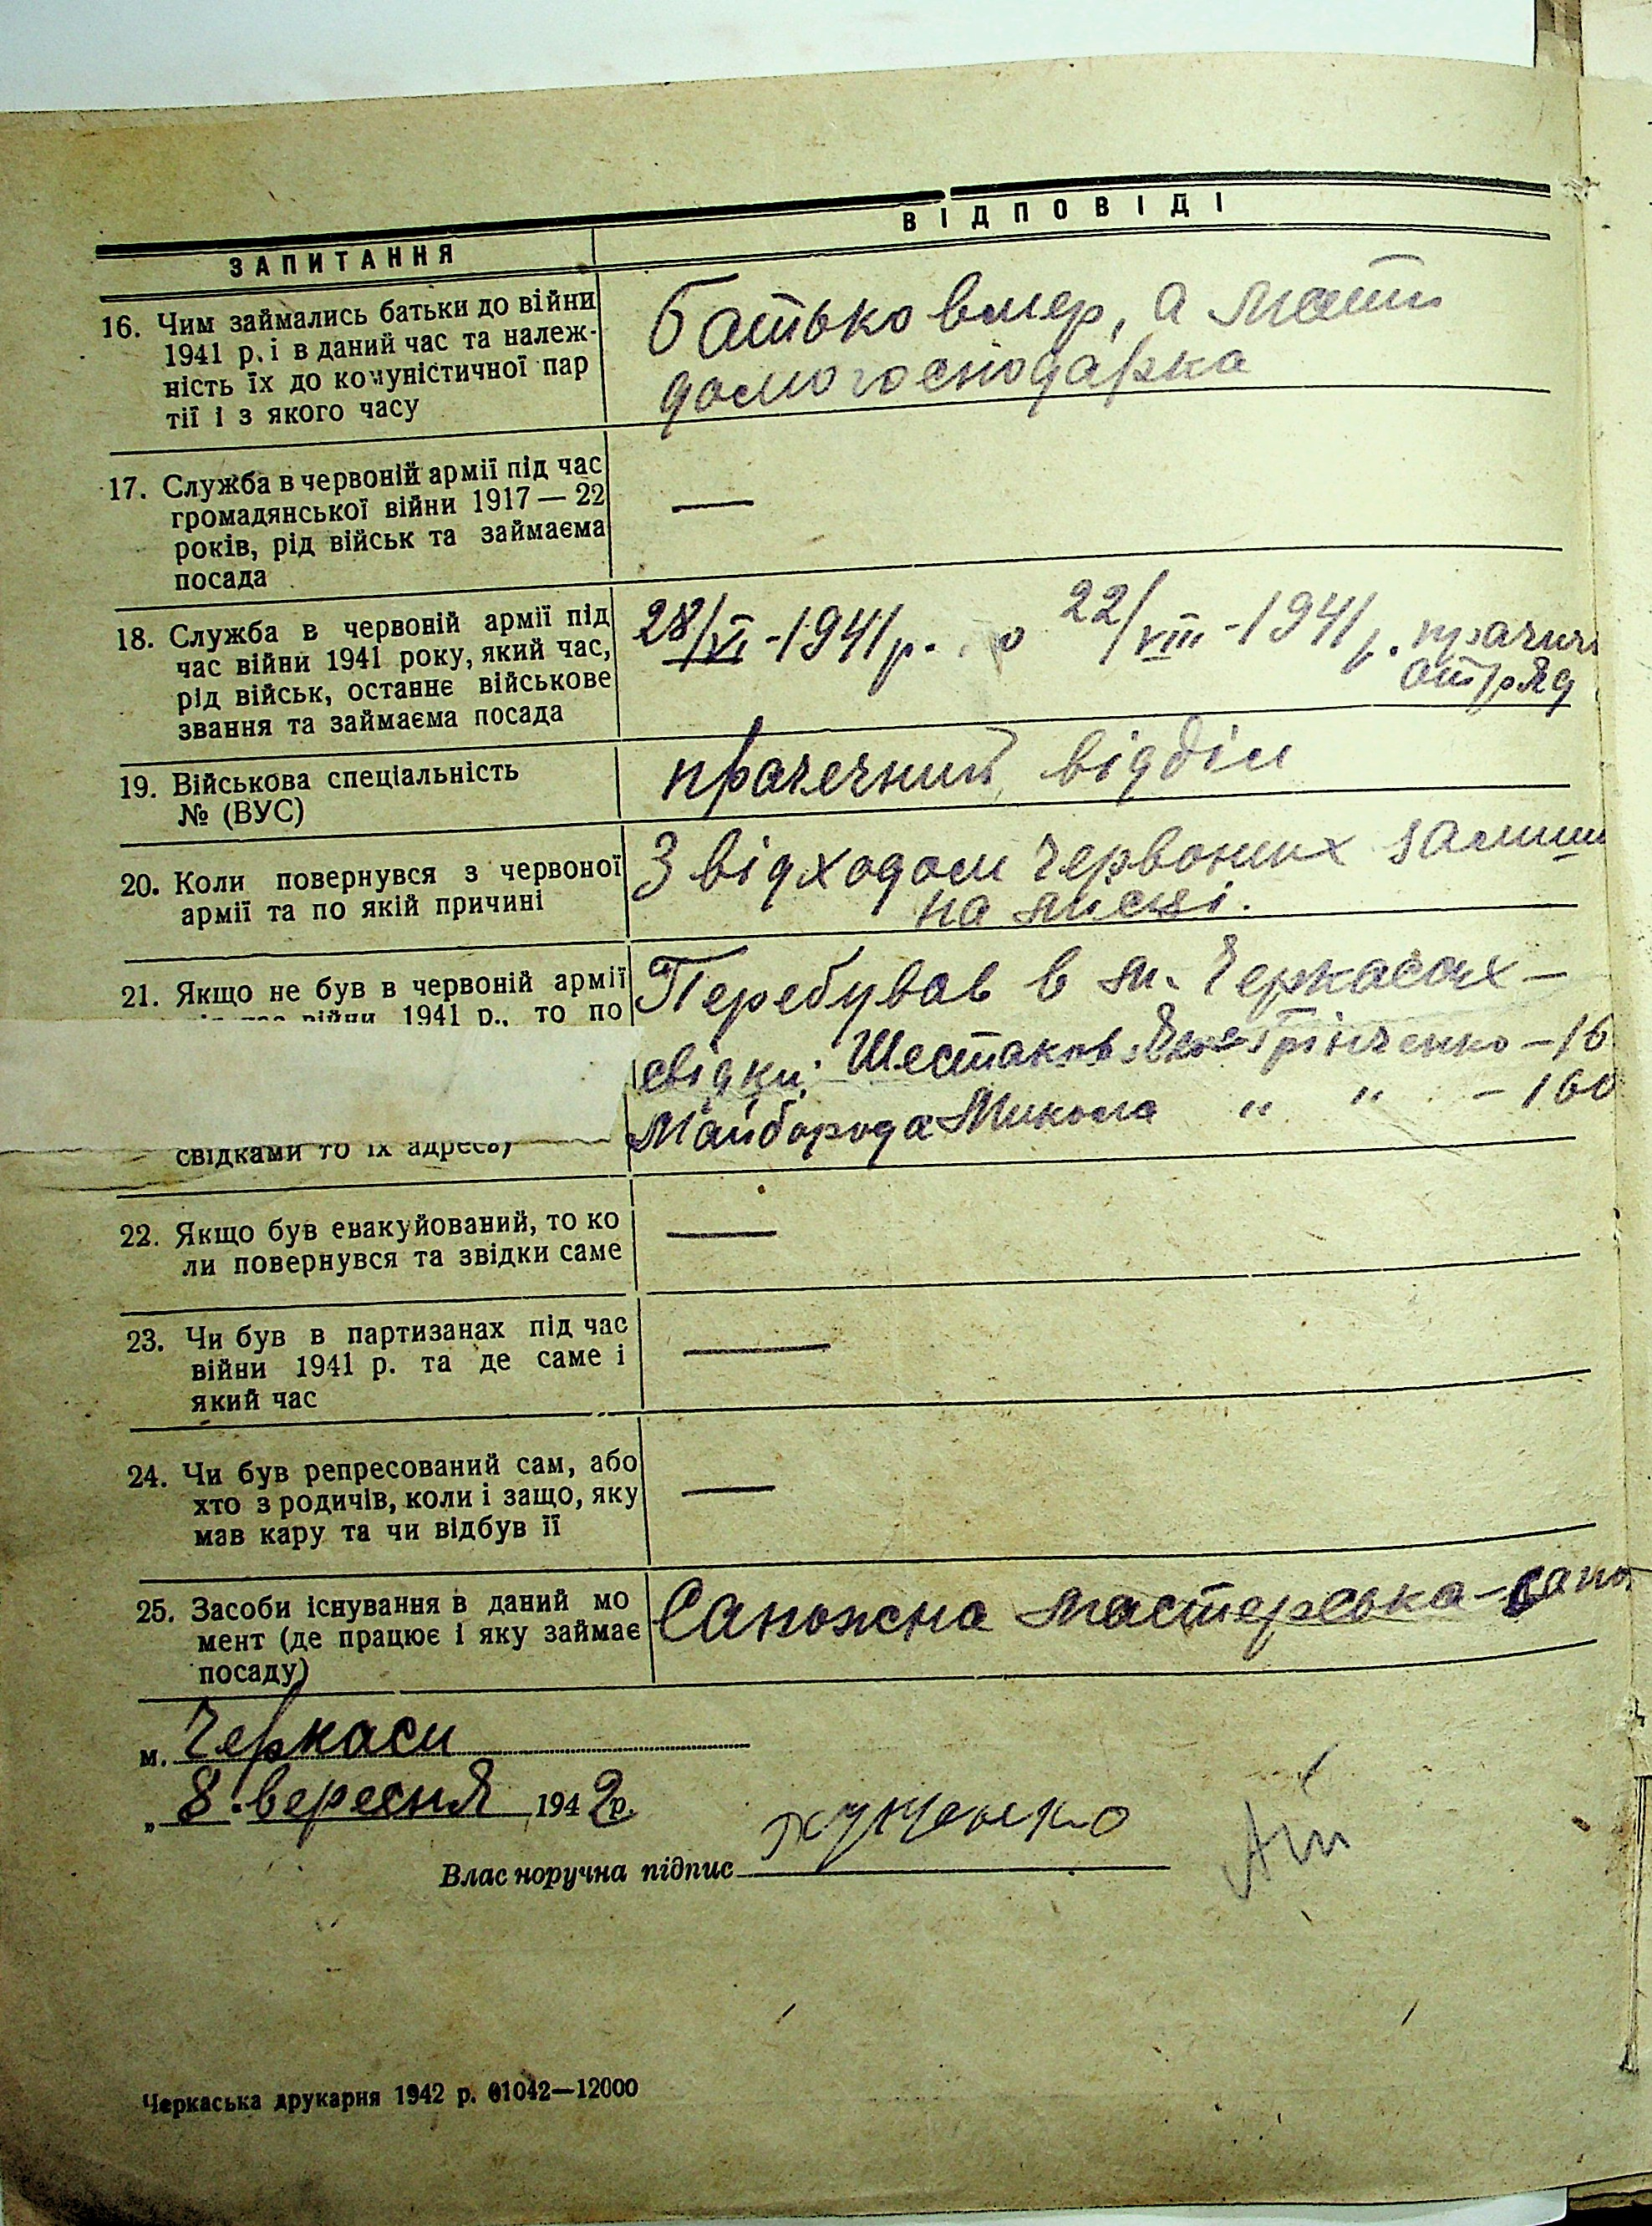 ЗАПИТАННЯ
ВІДПОВІДІ
16. Чим займались батьки до війни
1941 р. і в даний час та належ-
ність їх до комуністичної пар
тії і з якого часу
Батько вмер, а мати
домогосподарка
17. Служба в червоній армії під час
громадянської війни 1917 — 22
років, рід військ та займаєма
посада
—
18. Служба в червоній армії під
час війни 1941 року, який час,
рід військ, останнє військове
звання та займаєма посада
28/VI-1941р. о 22/VIII-1941р.
отряд
19. Військова спеціальність
№ (ВУС)
прачечний відділ
20. Коли повернувся з червоної
армії та по якій причині
З відходом червоних
на місці.
21. Якщо не був в червоній армії
війни 1941 р., то по
свідками то їх адресь)
Перебував в м. Черкасах —
свідки: Шестаков Грінченко — 16
Майборода Микола " " — 160
22. Якщо був евакуйований, то ко
ли повернувся та звідки саме
—
23. Чи був в партизанах під час
війни 1941 р. та де саме і
який час
—
24. Чи був репресований сам, або
хто з родичів, коли і защо, яку
мав кару та чи відбув її
—
25. Засоби існування в даний мо
мент (де працює і яку займає
посаду)
Сапожна мастерська — сапо
м. Черкаси
„ 8 " вересня 1942р.
Власноручна підпис
Черкаська друкарня 1942 р. 01042—12000